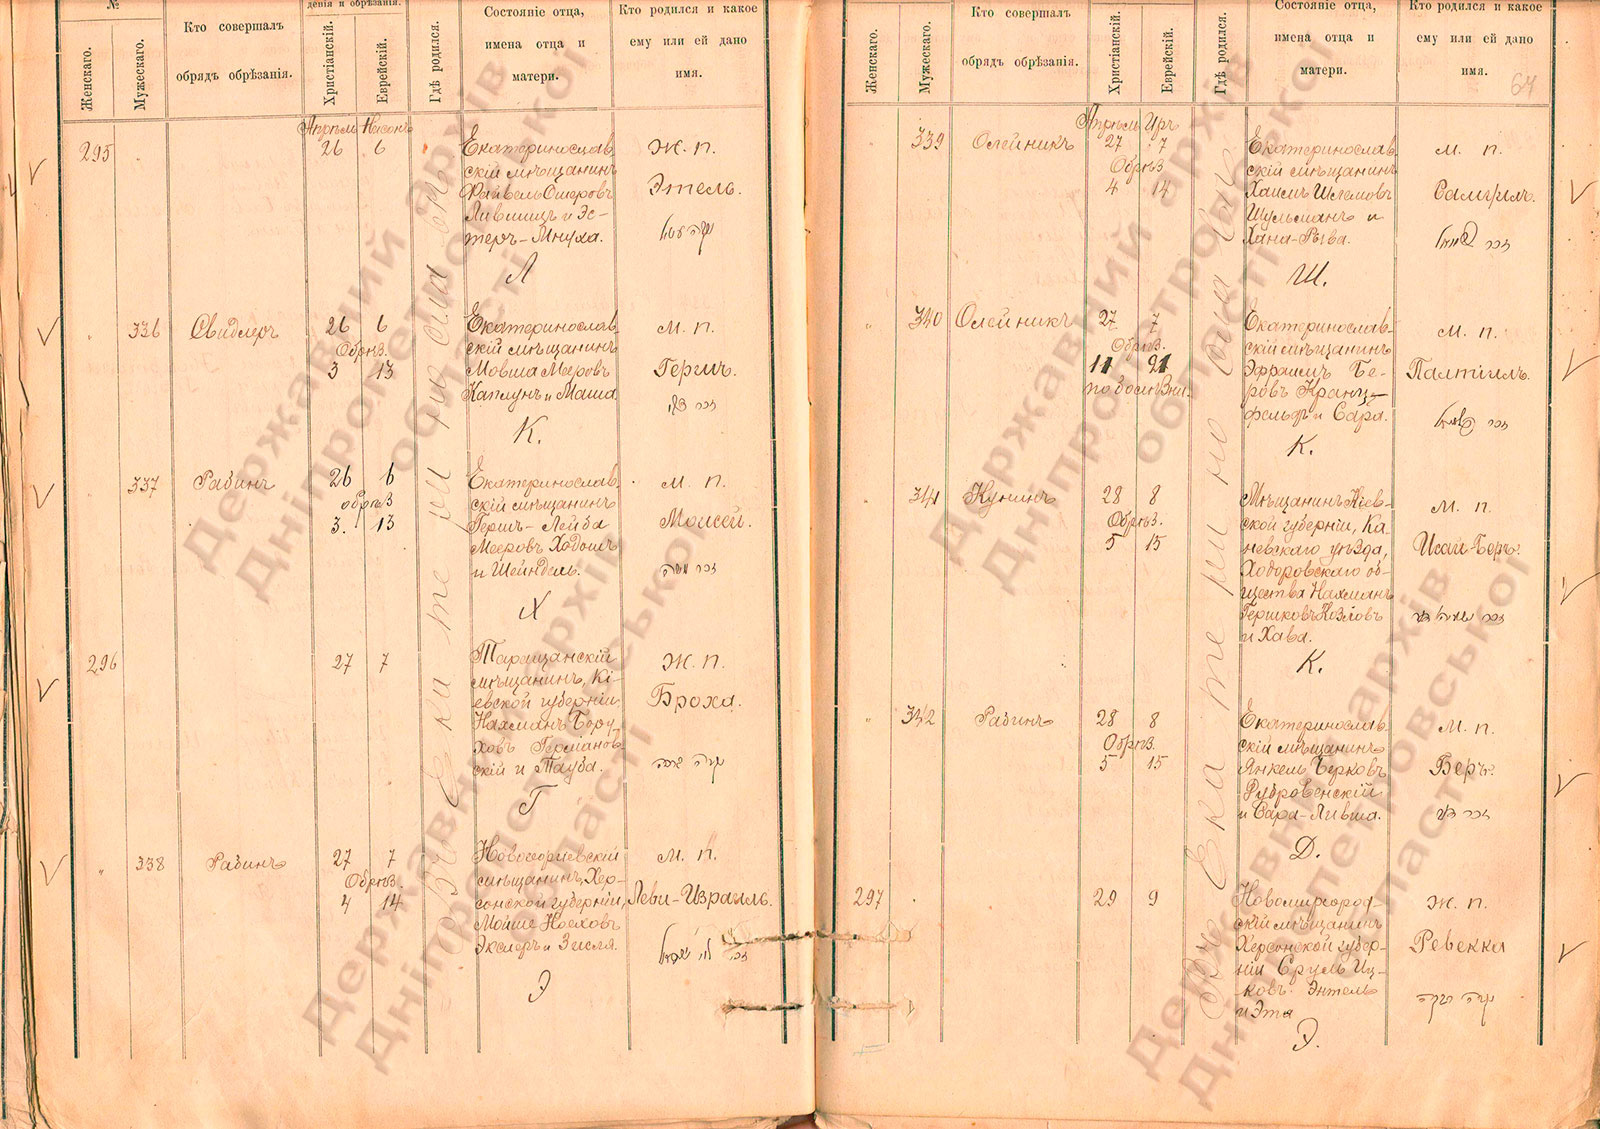 №
дения и обрѣзанія.
Женскаго.
Мужескаго.
Кто совершалъ
обрядъ обрѣзанія.
Христіанскій.
Еврейскій.
Гдѣ родился.
Состояніе отца,
имена отца и
матери.
Кто родился и какое
ему или ей дано
имя.
Апрѣль
295
26 6
Екатеринослав
скій мѣщанинъ
Файвель Ошеровъ
Лившицъ и Эс-
теръ-Мнуха.
Л
Ж. п.
Этель.
336
Свидлеръ
26 6
Обрѣз.
3 13
Екатеринослав
скій мѣщанинъ
Мовша Мееровъ
Каплунъ и Маша.
К.
м. п.
Гершъ.
337
Рабинъ
26 6
обрѣз
3. 13
Екатеринослав
скій мѣщанинъ
Гершъ-Лейба
Мееровъ Ходошъ
и Шейндель.
Х
м. п.
Моисей.
זכר משה
296
27 7
Таращанскій
мѣщанинъ, Кі-
евской губерніи
Нахманъ Бору-
ховъ Германов
скій и Тауба.
Г
Ж. п.
Броха.
338
Рабинъ
27 7
Обрѣз.
4 14
Новогеоргіевскій
мѣщанинъ, Хер-
сонской губерніи,
Мойше Ноеховъ
Экслеръ и Зисля.
Э
м. п.
Леви-Израиль.
זכר לוי ישראל
Въ Екатеринославѣ
Женскаго.
Мужескаго.
Кто совершалъ
обрядъ обрѣзанія.
Христіанскій.
Еврейскій.
Гдѣ родился.
Состояніе отца,
имена отца и
матери.
Кто родился и какое
ему или ей дано
имя.
64
Апрѣль Иръ
339
Олейникъ
27 7
Обрѣз
4 14
Екатеринослав
скій мѣщанинъ
Хаимъ Шлемовъ
Шульманъ и
Хана-Рива.
Ш.
м. п.
Самуилъ.
זכר שמואל
340
Олейникъ
27 7
Обрѣз.
11 21
по болѣзни.
Екатеринослав-
скій мѣщанинъ
Эфраимъ Бе-
ровъ Кранц-
фельдъ и Сара.
К.
м. п.
Палтіилъ.
זכר פלטיאל
341
Кунинъ
28 8
Обрѣз.
5 15
Мѣщанинъ Кіев-
ской губерніи, Ка-
невскаго уѣзда,
Ходоровскаго об-
щества Нахманъ
Гершковъ Козловъ
и Хава.
К.
м. п.
Исай-Беръ.
342
Рабинъ
28 8
Обрѣз.
5 15
Екатеринослав
скій мѣщанинъ
Янкель Берковъ
и Сара-Лившa.
Д.
м. п.
Беръ.
זכר בער
297
29 9
Новомиргород-
скій мѣщанинъ
Херсонской губер-
ніи Сруль Иц-
ковъ Энтель
и Эта
Э.
Ж. п.
Ревекка
Въ Екатеринославѣ
Державний архів
Дніпропетровської
області